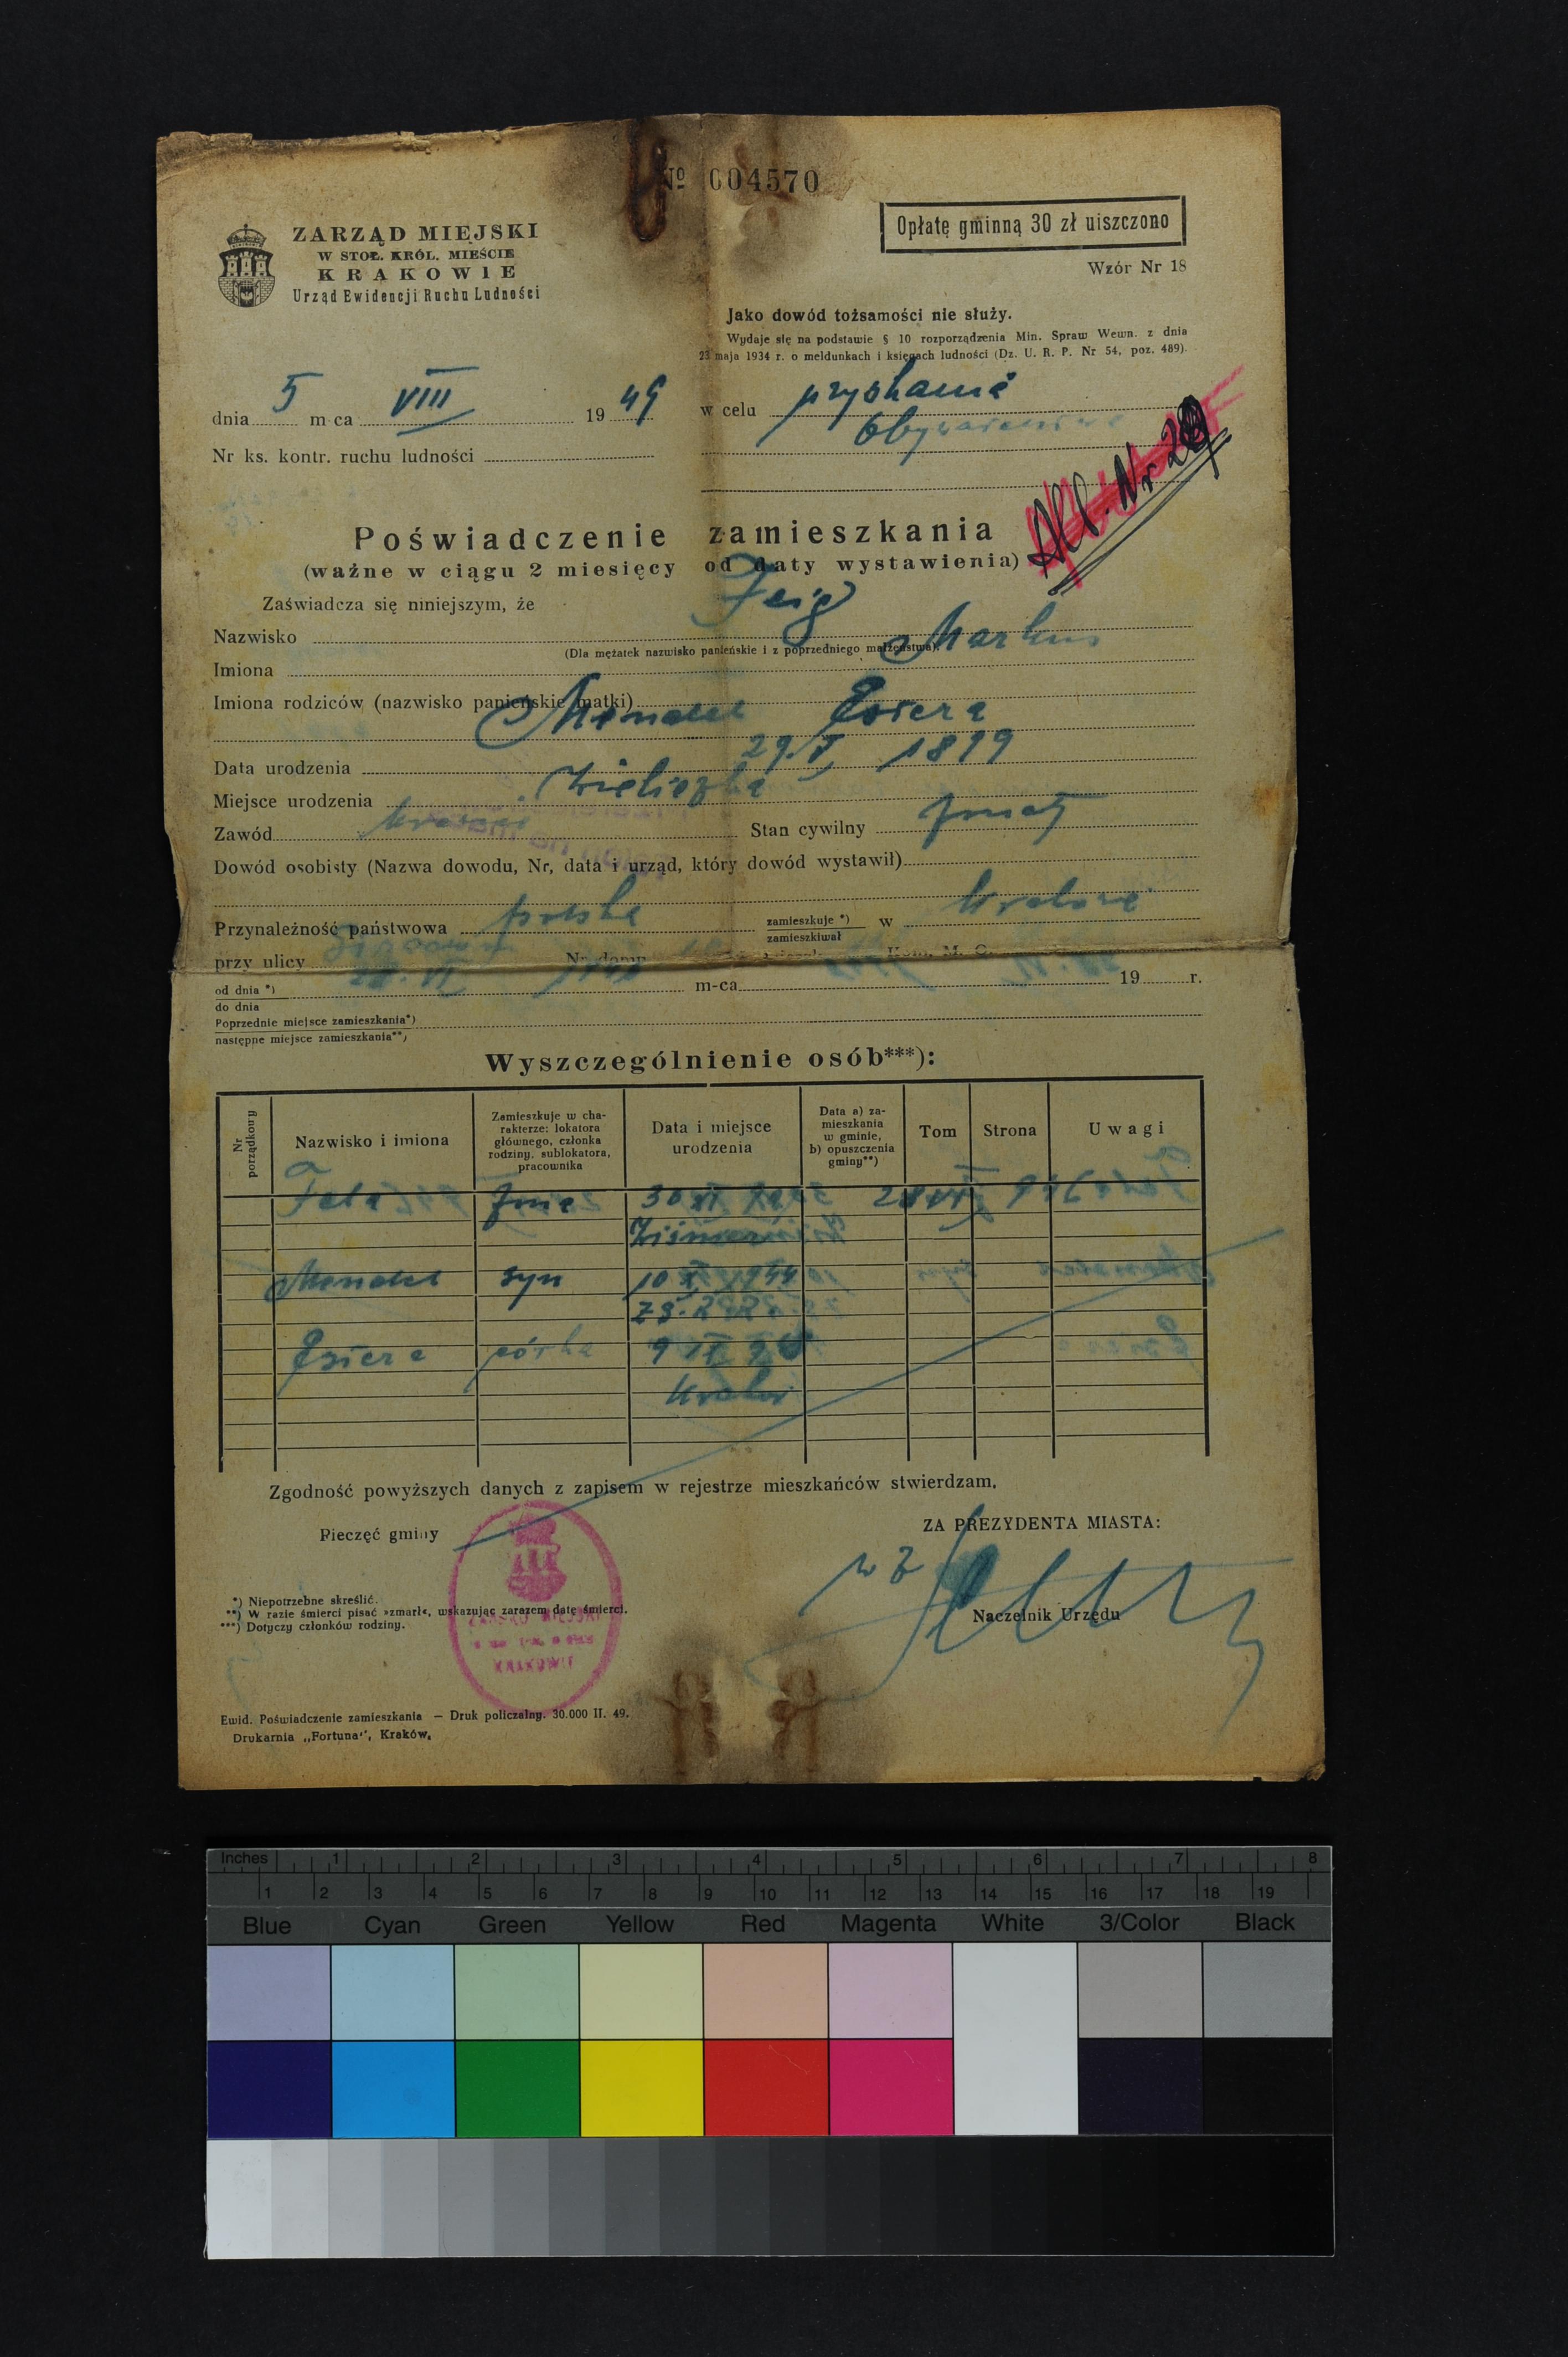 № 004570
ZARZĄD MIEJSKI
W STOŁ. KRÓL. MIEŚCIE
KRAKOWIE
Urząd Ewidencji Ruchu Ludności
Opłatę gminną 30 zł uiszczono
Wzór Nr 18
Jako dowód tożsamości nie służy.
Wydaje się na podstawie § 10 rozporządzenia Min. Spraw Wewn. z dnia
23 maja 1934 r. o meldunkach i księgach ludności (Dz. U. R. P. Nr 54, poz. 489).
dnia 5 m-ca VIII 1949
w celu
Nr ks. kontr. ruchu ludności
Poświadczenie zamieszkania
(ważne w ciągu 2 miesięcy od daty wystawienia)
Zaświadcza się niniejszym, że
Nazwisko Feig
(Dla mężatek nazwisko panieńskie i z poprzedniego małżeństwa)
Imiona Markus
Imiona rodziców (nazwisko panieńskie matki)
Mendel Estera
Data urodzenia
Miejsce urodzenia Wieliczka
Zawód krawiec Stan cywilny żonaty
Dowód osobisty (Nazwa dowodu, Nr, data i urząd, który dowód wystawił)
Przynależność państwowa polska zamieszkuje *) zamieszkiwał w Krakowie
przy ulicy Nr domu Kom. M. O.
od dnia *)
do dnia
m-ca 19 r.
Poprzednie miejsce zamieszkania*)
następne miejsce zamieszkania**)
Wyszczególnienie osób***):
Nr porządkowy
Nazwisko i imiona
Zamieszkuje w charakterze: lokatora głównego, członka rodziny, sublokatora, pracownika
Data i miejsce urodzenia
Data a) zamieszkania w gminie, b) opuszczenia gminy**)
Tom
Strona
Uwagi
Fela żona
Mendel syn 10 X 1944
Z.S.R.R.
Estera córka
Kraków
Zgodność powyższych danych z zapisem w rejestrze mieszkańców stwierdzam.
Pieczęć gminy
ZA PREZYDENTA MIASTA:
wz
Naczelnik Urzędu
ZARZĄD MIEJSKI
KRAKOWIE
*) Niepotrzebne skreślić.
**) W razie śmierci pisać »zmarł«, wskazując zarazem datę śmierci.
***) Dotyczy członków rodziny.
Ewid. Poświadczenie zamieszkania — Druk policzalny. 30.000 II. 49.
Drukarnia „Fortuna", Kraków.
Inches 1 2 3 4 5 6 7 8
1 2 3 4 5 6 7 8 9 10 11 12 13 14 15 16 17 18 19
Blue Cyan Green Yellow Red Magenta White 3/Color Black